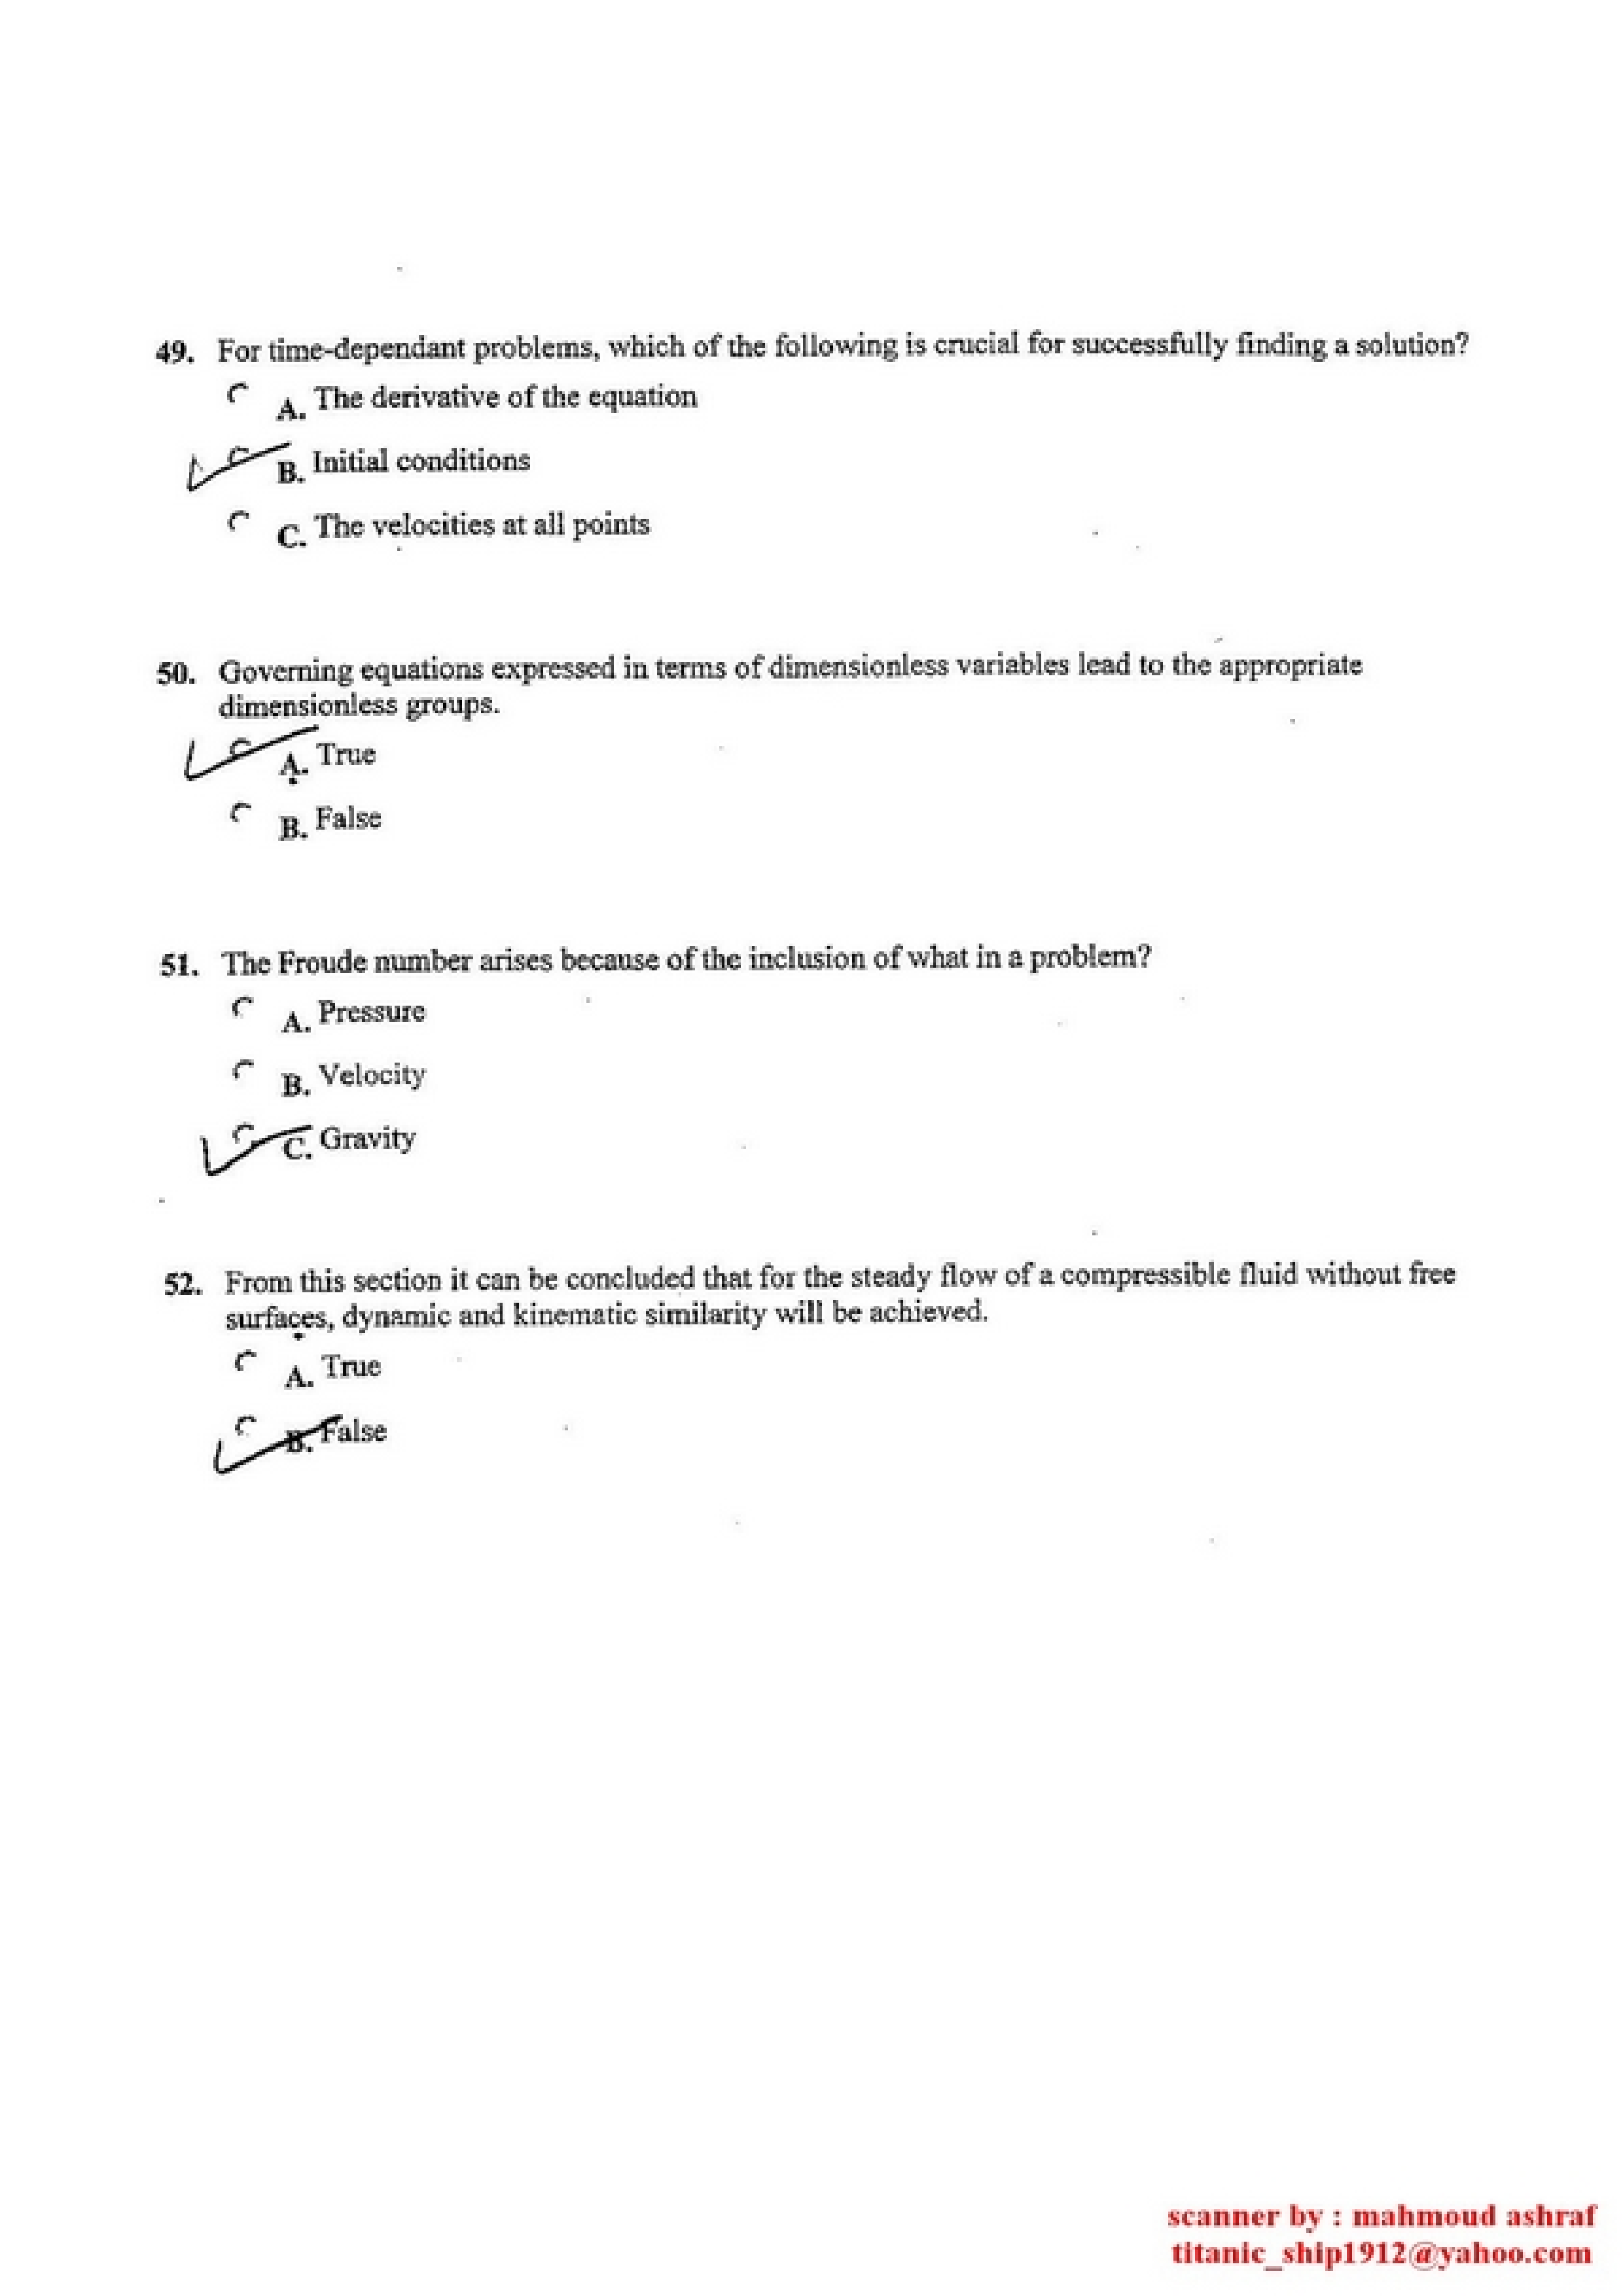 49. For time-dependant problems, which of the following is crucial for successfully finding a solution?
A. The derivative of the equation
B. Initial conditions
C. The velocities at all points
50. Governing equations expressed in terms of dimensionless variables lead to the appropriate
dimensionless groups.
A. True
B. False
51. The Froude number arises because of the inclusion of what in a problem?
A. Pressure
B. Velocity
C. Gravity
52. From this section it can be concluded that for the steady flow of a compressible fluid without free
surfaces, dynamic and kinematic similarity will be achieved.
A. True
B. False
scanner by : mahmoud ashraf
titanic_ship1912@yahoo.com